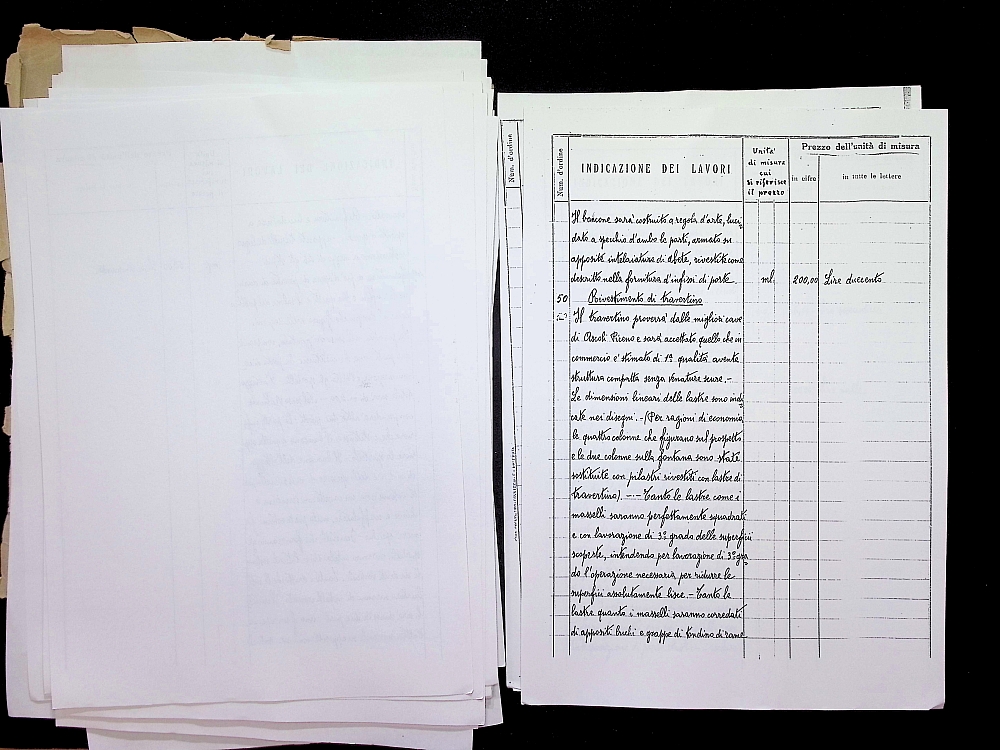 Num. d'ordine
Num. d'ordine
INDICAZIONE DEI LAVORI
Unita' di misura cui si riferisce il prezzo
Prezzo dell'unità di misura
in cifre
in tutte le lettere
Il bancone sarà costruito a regola d'arte, luci
dato a specchio d'ambo le parti, armato su
apposite intelaiature di abete, rivestite come
descritto nella fornitura d'infissi di porte.
ml. 200,00 Lire duecento
50 Rivestimento di travertino
Il travertino proverrà dalle migliori cave
di Ascoli Piceno e sarà accettato quello che in
commercio e' stimato di 1ª qualità avente
struttura compatta senza venature scure.-
Le dimensioni lineari delle lastre sono indi
cate nei disegni.-(Per ragioni di economia
le quattro colonne che figurano sul prospetto
e le due colonne sulla fontana sono state
sostituite con pilastri rivestiti con lastre di
travertino).-.- Tanto le lastre come i
masselli saranno perfettamente squadrati
e con lavorazione di 3º grado delle superfici
scoperte, intendendo per lavorazione di 3º gra
do l'operazione necessaria per ridurre le
superfici assolutamente lisce.- Tanto le
lastre quanto i masselli saranno corredati
di appositi buchi e grappe di tondino di rame